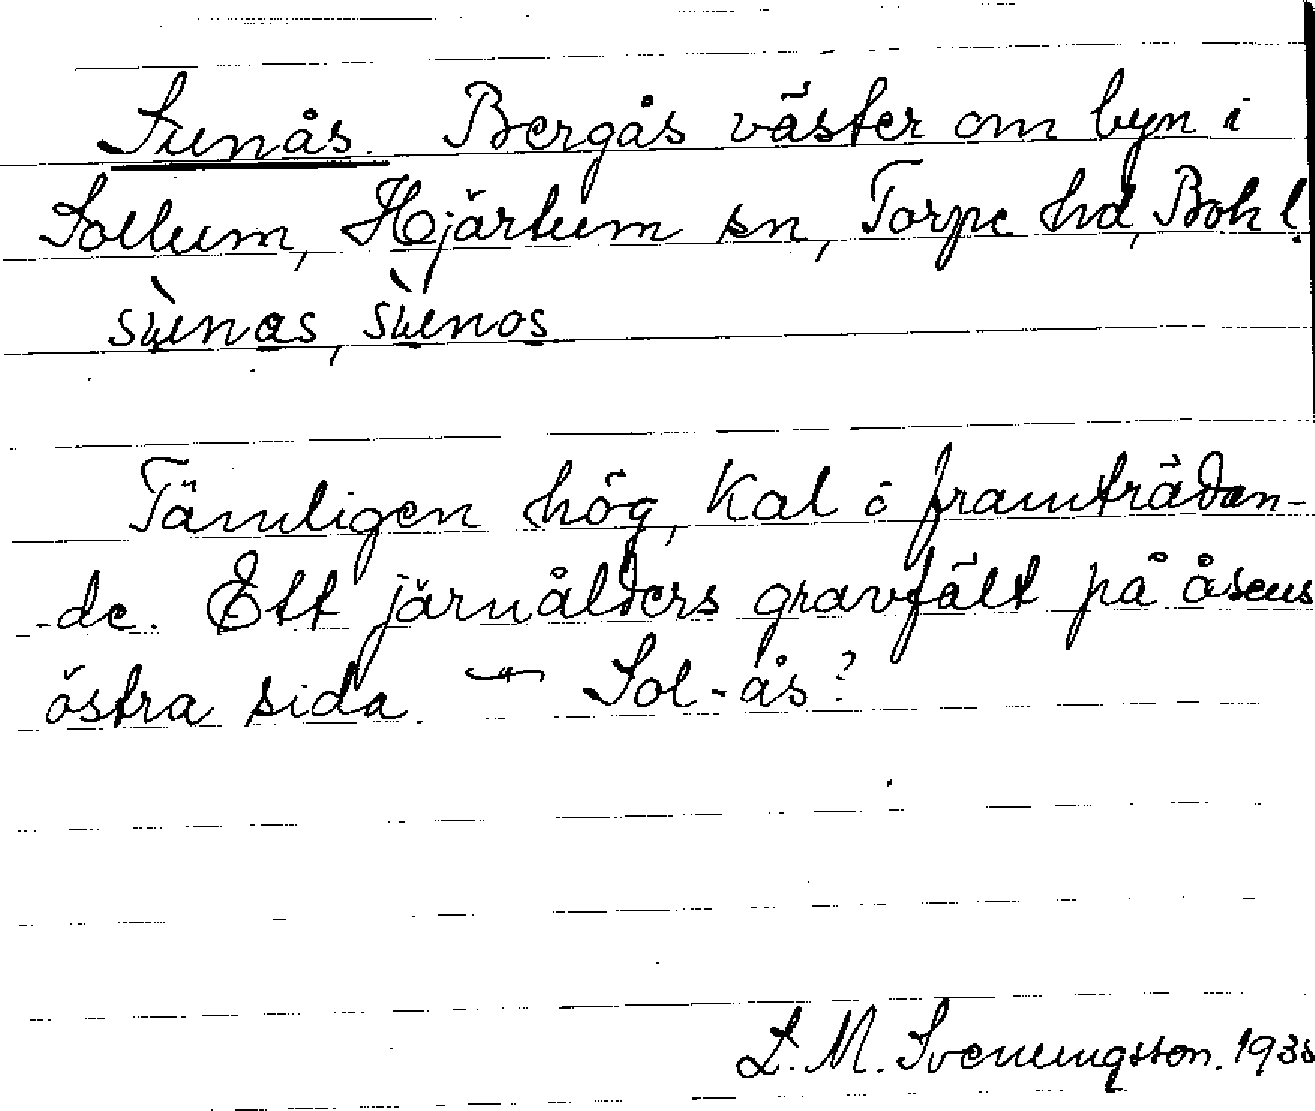 Sunås. Bergås väster om byn i
Sollum, Hjärtum sn, Torpe hd, Boh l.
Tämligen hög, kal o framträdan-
de. Ett järnålders gravfält på åsens
östra sida. — Sol-ås?
L. M. Svenungsson.